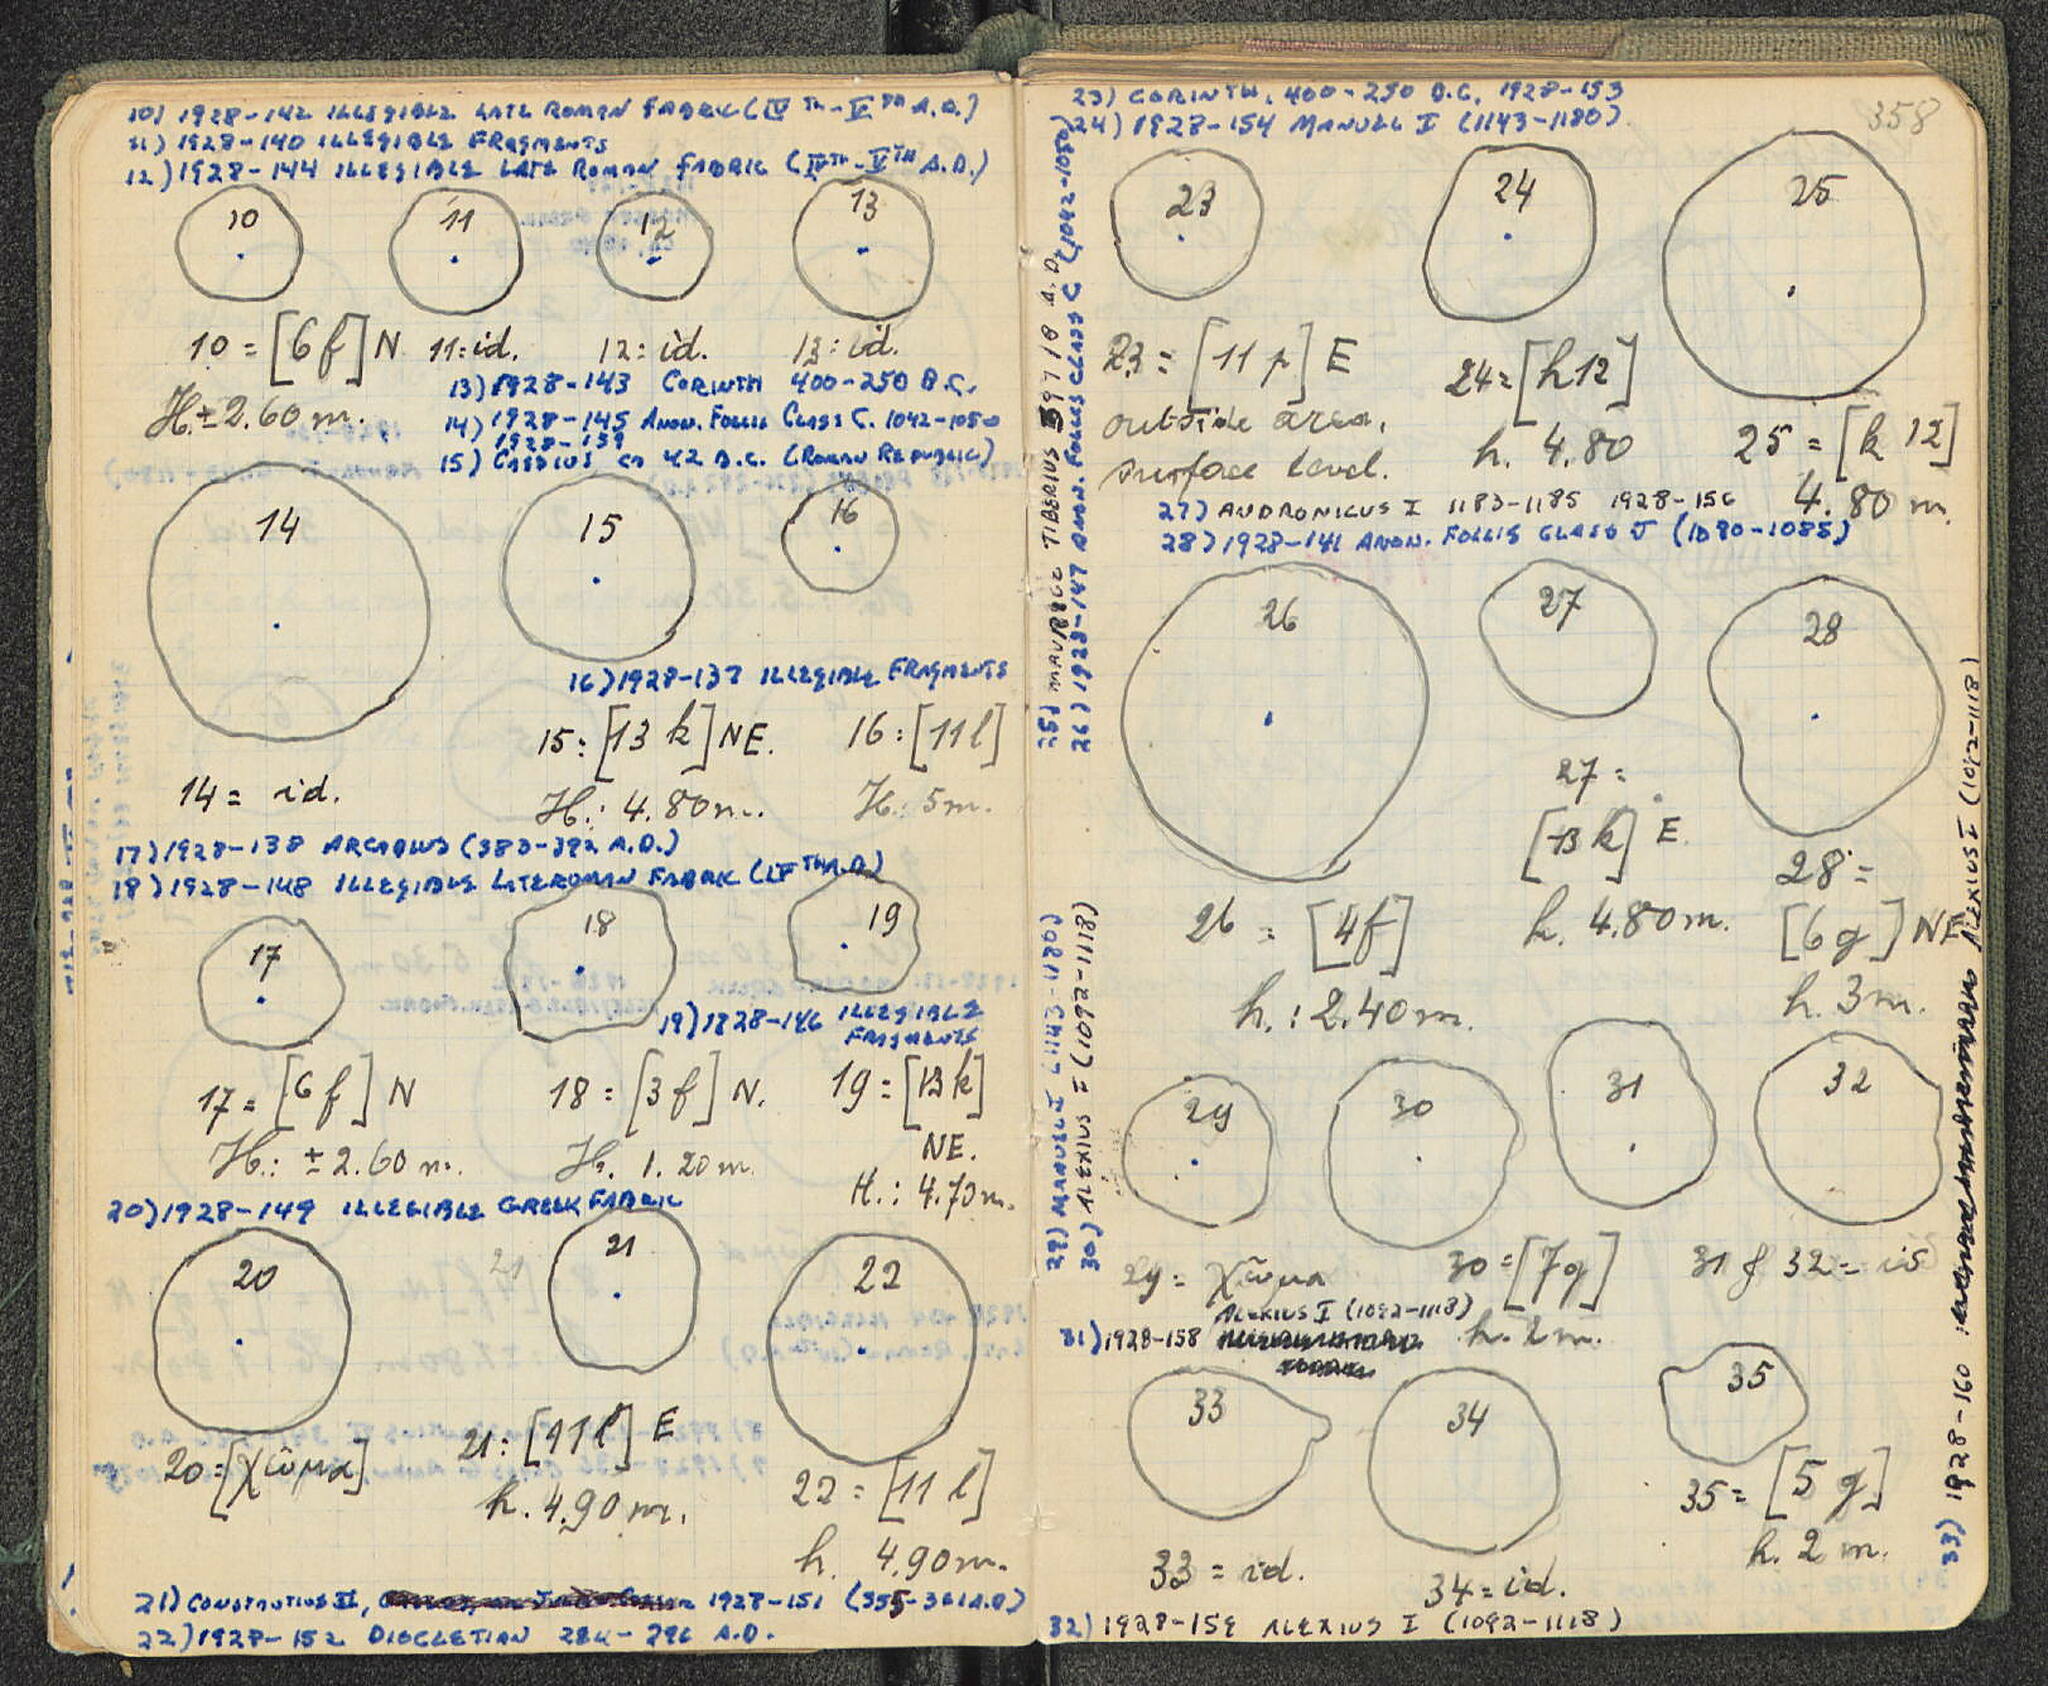 10) 1928-142 ILLEGIBLE LATE ROMAN FABRIC (IV TH - V TH A.D.)
11) 1928-140 ILLEGIBLE FRAGMENTS
12) 1928-144 ILLEGIBLE LATE ROMAN FABRIC (IV TH - V TH A.D.)
10 11 12 13
10 = [6 f] N 11: id. 12: id. 13: id.
H. ± 2.60 m.
13) 1928-143 CORINTH 400-250 B.C.
14) 1928-145 ANON. FOLLIS CLASS C. 1042-1050
1928-139
15) CASSIUS CA 42 B.C. (ROMAN REPUBLIC)
14 15 16
16) 1928-137 ILLEGIBLE FRAGMENTS
15: [13 k] NE. 16: [11 l]
14 = id. H.: 4.80 m. H.: 5 m.
17) 1928-138 ARCADIUS (383-392 A.D.)
18) 1928-148 ILLEGIBLE LATE ROMAN FABRIC (IV TH A.D.)
17 18 19
19) 1928-146 ILLEGIBLE
FRAGMENTS
17 = [6 f] N 18 = [3 f] N. 19 = [13 k]
NE.
H.: ± 2.60 m. H. 1.20 m.
H.: 4.70 m.
20) 1928-149 ILLEGIBLE GREEK FABRIC
20 21 21 22
20 = [χῶμα] 21: [11 l] E
h. 4.90 m. 22 = [11 l]
h. 4.90 m.
21) CONSTANTIUS II, 1928-151 (355-361 A.D)
22) 1928-152 DIOCLETIAN 284-296 A.D.
23) CORINTH, 400-250 B.C. 1928-153
24) 1928-154 MANUEL I (1143-1180)
358
23 24 25
23 = [11 p] E 24 = [h 12]
outside area,
surface level. h. 4.80 25 = [k 12]
4.80 m.
25) MAURICE TIBERIUS 597/8 A.D.
26) 1928-147 ANON. FOLLIS CLASS C (1042-1050)
27) ANDRONICUS I 1183-1185 1928-156
28) 1928-141 ANON. FOLLIS CLASS J (1080-1085)
26 27 28
27 =
[13 k] E.
h. 4.80 m.
28 =
[6 g] NE
h. 3 m.
26 = [4 f]
h.: 2.40 m.
29) MANUEL I (1143-1180)
30) ALEXIUS I (1092-1118)
29 30 31 32
29 = χῶμα 30 = [7 g] 31 & 32 = id
ALEXIUS I (1092-1118)
31) 1928-158 h. 2 m.
33 34 35
35 = [5 g]
h. 2 m.
33 = id. 34 = id.
32) 1928-159 ALEXIUS I (1092-1118)
33) 1928-160 ALEXIUS I (1092-1118)